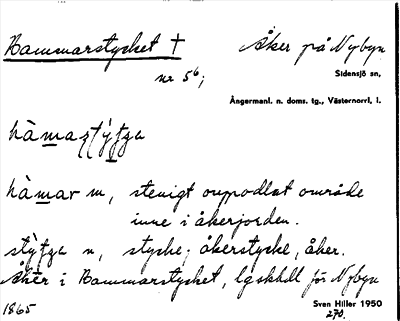 Hammarstycket † Åker på Nybyn
nr 5⁶; Sidensjö sn,
Ångermanl. n. doms. tg., Västernorrl. l.
hàmar m, stenigt ouppodlat område
inne i åkerjorden.
n, stycke; åkerstycke, åker.
Åker i Hammarstycket, lgskhdl för Nybyn
1865 Sven Hiller 1950
270.